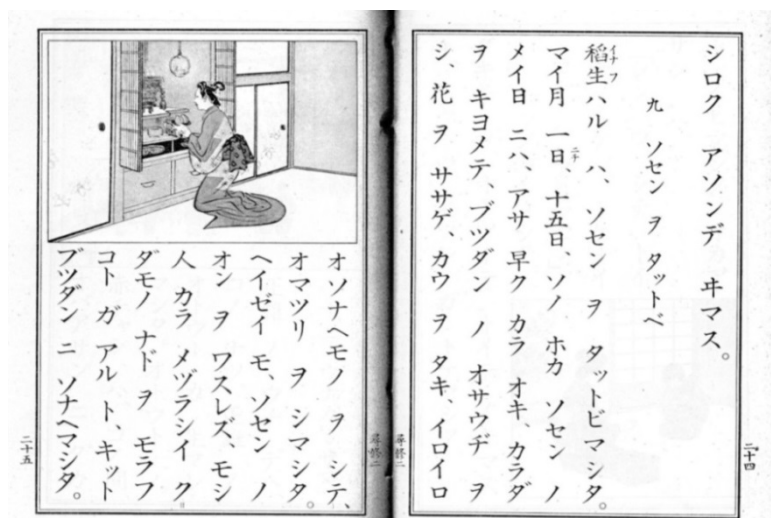 シロク アソンデ ヰマス。
九 ソセン ヲ タットベ
稲生ハル ハ、ソセン ヲ タットビマシタ。
イナフ
マイ月 一日、十五日、ソノ ホカ ソセン ノ
メイ日 ニハ、アサ 早ク カラ オキ、カラダ
ヲ キヨメテ、ブツダン ノ オサウヂ ヲ
シ、花 ヲ ササゲ、カウ ヲ タキ、イロイロ
尋修二
二十四
オソナヘモノ ヲ シテ、
オマツリ ヲ シマシタ。
ヘイゼイ モ、ソセン ノ
オン ヲ ワスレズ、モシ
人 カラ メヅラシイ ク
ダモノ ナド ヲ モラフ
コト ガ アル ト、キット
ブツダン ニ ソナヘマシタ。
尋修二
二十五